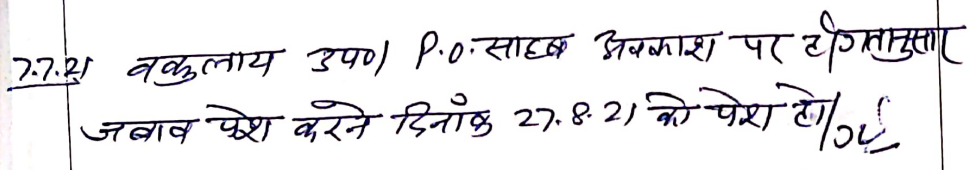 7.7.21 वकुलाय उप०) P.O. साहब अवकाश पर है
जबाव पेश करने दिनाँक 27.8.21 को पेश हो/